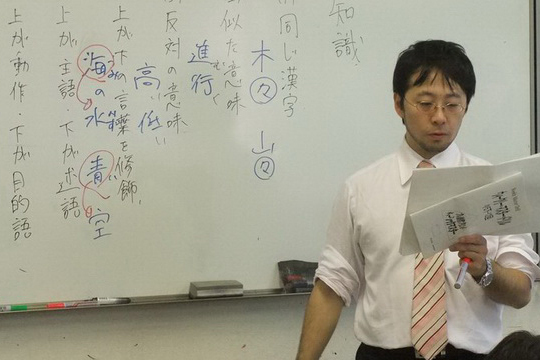 知識
同じ漢字
木々 山々
似た意味
進行
反対の意味
高い 低い
上が下の言葉を修飾
海の水 青い空
上が主語 下が述語
上が動作・下が目的語